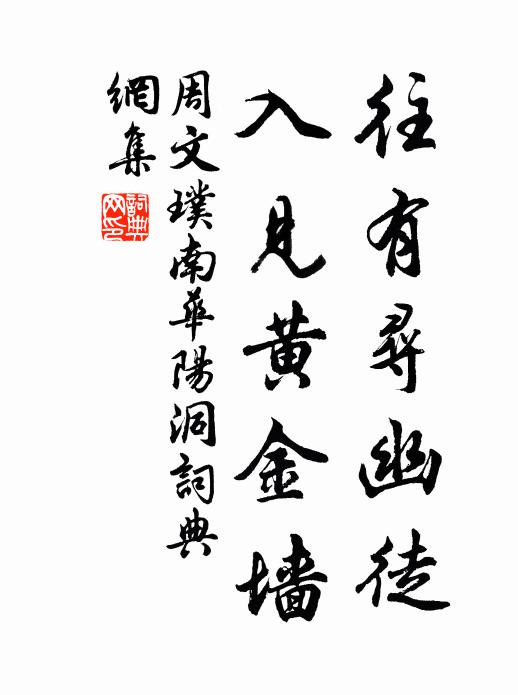 往有尋幽徒
入見黄金墙
周文璞南華陽洞詞典
網集
詞典網印